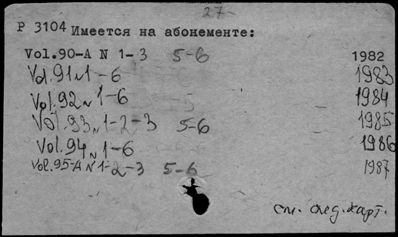 27-
P 3104 Имеется на абонементе:
Vol.90-A N 1-3 5-6 1982
Vol.91 N 1-6 1983
Vol.92 N 1-6 1984
Vol.93 N 1-2-3 5-6 1985
Vol.94 N 1-6 1986
Vol.95-A N 1-2-3 5-6 1987
см. след. карт.